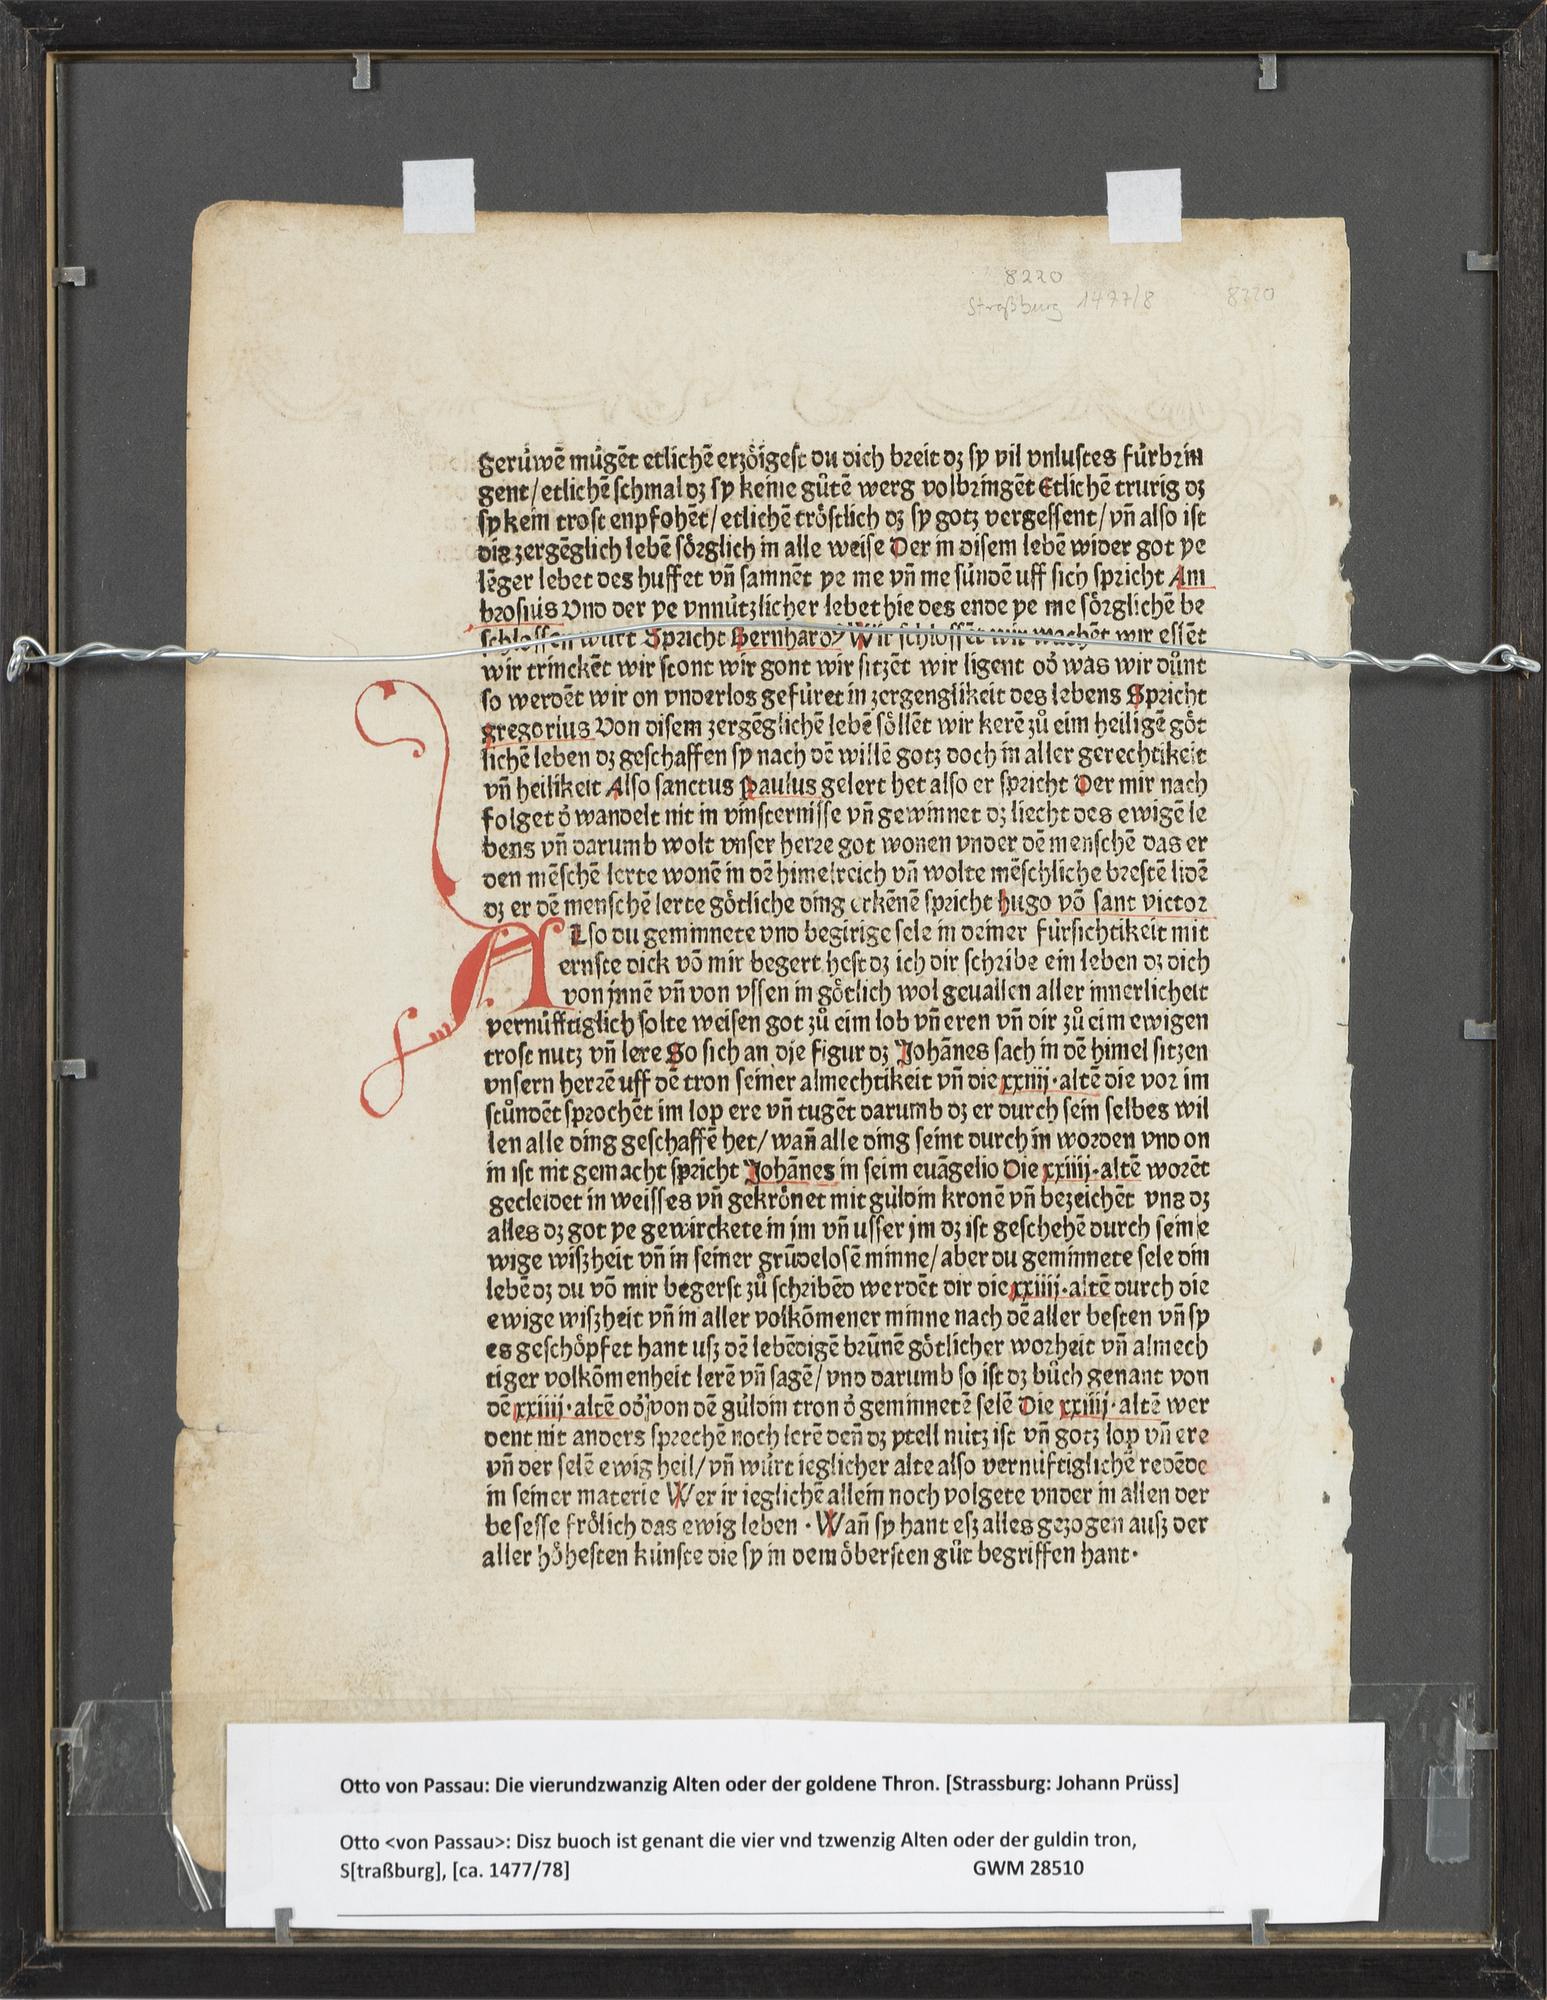 8220
Straßburg 1477/8 8220
gerůwē můgēt etlichē erzöigest du dich breit dz sy vil vnlustes fürbrin
gent/etlichē schmal dz sy keine gůtē werg volbringēt Etlichē trurig dz
sy kein trost enpfohēt/etlichē tröstlich dz sy gotz vergessent/vn̄ also ist
dis zergēglich lebē sörglich in alle weise Der in disem lebē wider got ye
lēger lebet des huffet vn̄ samnēt ye me vn̄ me sündē uff sich spricht Am
brosius Vnd der ye vnnützlicher lebet hie des ende ye me sörglichē be
schlossen würt Spricht Bernhardꝰ Wir schloffēt wir machēt wir essēt
wir trinckēt wir stont wir gont wir sitzēt wir ligent od̓ was wir důnt
so werdēt wir on vnderlos gefüret in zergenglikeit des lebens Spricht
gregorius Von disem zergēglichē lebē söllēt wir kerē zů eim heiligē göt
lichē leben dz geschaffen sy nach dē willē gotz doch in aller gerechtikeit
vn̄ heilikeit Also sanctus paulus gelert het also er spricht Der mir nach
folget d̓ wandelt nit in vinsternisse vn̄ gewinnet dz liecht des ewigē le
bens vn̄ darumb wolt vnser herre got wonen vnder dē menschē das er
den mēschē lerte wonē in dē himelreich vn̄ wolte mēschliche brestē lidē
dz er dē menschē lerte götliche ding erkēnē spricht hugo vō sant victor
ALso du geminnete vnd begirige sele in deiner fürsichtikeit mit
ernste dick vō mir begert hest dz ich dir schribe ein leben dz dich
von jnnē vn̄ von vssen in götlich wol geuallen aller innerlicheit
vernüfftiglich solte weisen got zů eim lob vn̄ eren vn̄ dir zů eim ewigen
trost nutz vn̄ lere So sich an die figur dz Johānes sach in dē himel sitzen
vnsern herrē uff dē tron seiner almechtikeit vn̄ die xxiiij·altē die vor im
stůndēt sprochēt im lop ere vn̄ tugēt darumb dz er durch sein selbes wil
len alle ding geschaffē het/wan̄ alle ding seint durch in worden vnd on
in ist nit gemacht spricht Johānes in seim euāgelio Die xxiiij·altē worēt
gecleidet in weisses vn̄ gekrönet mit güldin kronē vn̄ bezeichēt vns dz
alles dz got ye gewirckete in im vn̄ usser jm dz ist geschehē durch sein e
wige wiszheit vn̄ in seiner grūdelosē minne/aber du geminnete sele din
lebē dz du vō mir begerst zů schribēd werdēt dir die xxiiij·altē durch die
ewige wiszheit vn̄ in aller volkōmener minne nach dē aller besten vn̄ sy
es geschöpfet hant usz dē lebēdigē brūnē götlicher worheit vn̄ almech
tiger volkōmenheit lerē vn̄ sagē/vnd darumb so ist dz bůch genant von
dē xxiiij·altē od̓ von dē güldin tron d̓ geminnetē selē Die xxiiij·altē wer
dent nit anders sprechē noch lerē den̄ dz ytell nütz ist vn̄ gotz lop vn̄ ere
vn̄ der selē ewig heil/vn̄ würt ieglicher alte also vernüftiglichē redēde
in seiner materie Wer ir ieglichē allein noch volgete vnder in allen der
besesse frölich das ewig leben · Wan̄ sy hant esz alles gezogen ausz der
aller höhesten künste die sy in dem öbersten gůt begriffen hant·
Otto von Passau: Die vierundzwanzig Alten oder der goldene Thron. [Strassburg: Johann Prüss]
Otto <von Passau>: Disz buoch ist genant die vier vnd tzwenzig Alten oder der guldin tron,
S[traßburg], [ca. 1477/78] GWM 28510